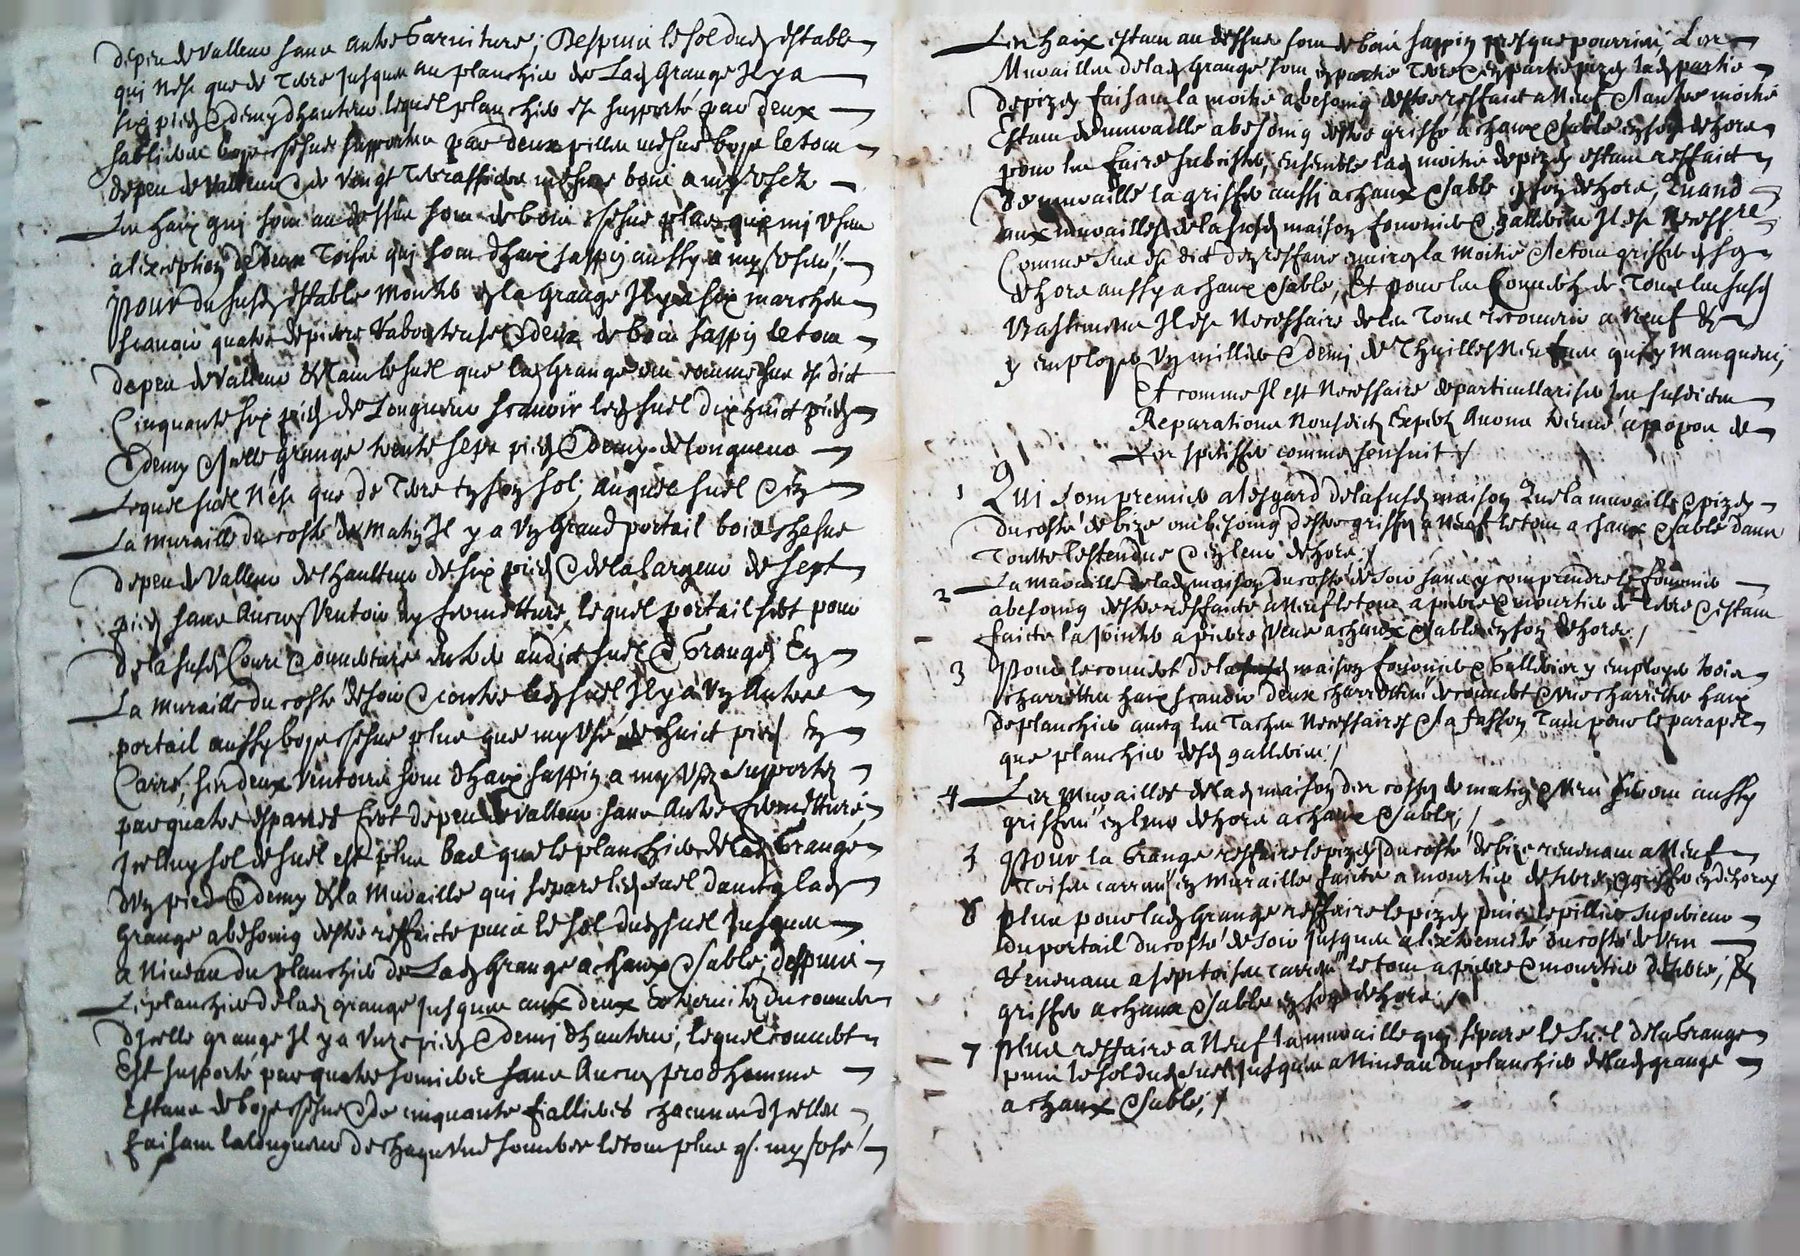 depeu de valleur sans autre Garniture; Despuis le sol dud estable
qui n'est que de Terre Jusques au planchier de Lad Grange Il y a
six pieds & demy d'hauteur lequel planchier est supporté par deux
sabliere boys chesne supportee par deux pilliers mesme boys le tout
de peu de Valleur & de vingt Terrassiere mesme bois a my uséz
Les haix qui sont au dessus sont de bois chesne plus que my uséz
a l'exeption de deux Toises qui sont d'haix sappin aussy a my usées;
Pour du susd estable monter en la Grange Il y a six marches
scavoir quatre de pierre & deux de bois sappin le tout
de peu de Valleur & tant le suel que lad Grange ont comme sus est dict
Cinquante six pieds de Longueur scavoir led suel dix huict pieds
& demy & lad Grange trente sept pieds & demy de longueur
Lequel suel n'est que de Terre en son sol; auquel suel & en
La muraille du costé de Matin Il y a un Grand portail bois chesne
de peu de Valleur de l'haulteur de six pieds & de la largeur de sept
pieds sans Aucun Ventoir ny fermetture, lequel portail sert pour
de la susd Court & ouverture entrer audict suel & Grange; En
La muraille du costé de soir & contre led suel Il y a un Autre
portail aussy boys chesne plus que my usé de huict pieds En
Carré; ses deux Ventoirs sont d'haix sappin a my usez supportez
par quatre esparres fert de peu de Valleur sans Autre fermetture,
Icelluy sol de suel est plus bas que le planchier de lad Grange
d'un pied & demy & la Muraille qui separe led suel d'avecq lad
Grange a besoing d'estre reffaicte puis le sol dud suel Jusques
a Niveau du planchier de Lad Grange a chaux & sable; despuis
Le planchier de lad grange jusques aux deux Extremitez du couvert
d'icelle grange Il y a unze pieds & demi d'hauteur, lequel couvert
Est supporté par quatre somiers sans Aucun prodhomme
Estans de boys chesne & de cinquante chacune d'Icelles
faisant la longueur de chaqu'une le tout plus q. my usé

Les haix estant au dessus sont de bois sappin presque pourris; Les
Murailles de lad Grange sont en partie Terre & en partie pizey lad partie
de pizey faisant la moitié a besoing d'estre reffaict a Neuf & l'autre moitié
Estant de muraille a besoing d'estre griffé a chaux & sable en son dehors
pour les faire subsister, ensemble lad moitié de pizey estant reffaict
de muraille la griffer aussi a chaux & sable en son dehors, Quand
aux murailles de la susd maison fournier & gallerie Il est Necessre
Comme sus est dict d'en reffaire environ la moitié & le tout griffer en son
dehors aussy a chaux & sable, Et pour les Couvertz de Tous les susd
Bastiments Il est Necessaire de les Tous recouvrir a Neuf &
y employer un millier & demi de Thuilles Neufves qui y manquent;
Et comme Il est Necessaire de particullariser les susdictes
Reparations Nousdicts Expertz Avons treuvé a propos de
Les speciffier comme s'ensuit /
1 Qui sont premier a l'esgard de la susd maison Que la muraille & pizey
du costé de bize ont besoing d'estre griffez a Neuf le tout a chaux & sable dans
Toutte l'estendue & en leur dehors /
2 La muraille de lad maison du costé de soir sans y comprendre le fournier
a besoing d'estre reffaicte a Neuf le tout a pierre & mourtier de terre & estant
faicte la joincter a pierre veue a chaux & sable en son dehors /
3 Pour le couvert de la maison fournier & Gallerie y employer trois
charrettes haix scandre deux charrettes de couvert & une charrette haix
de planchier avecq les Taches Necessaires & la fasson Tant pour le parapel
que planchier desd galleries /
4 Les Murailles de lad maison des costez de matin & vent seront aussy
griffées en leur dehors a chaux & sable; /
5 Pour la Grange reffaire le pizey du costé de bize revenant a Neuf
Toises carrées en Muraille faicte a mourtier de terre & griffer en dehors
6 Plus pour lad Grange reffaire le pizey puis le pillier superieur
du portail du costé de soir jusques a l'extremité du costé de Vent
Revenant a sept toises carrées le tout a pierre & mourtier de terre; &
griffer a chaux & sable en son dehors /
7 Plus reffaire a Neuf la muraille qui sépare le suel de la Grange
puis le sol dud suel jusques a Niveau du planchier de lad grange
a chaux & sable; /